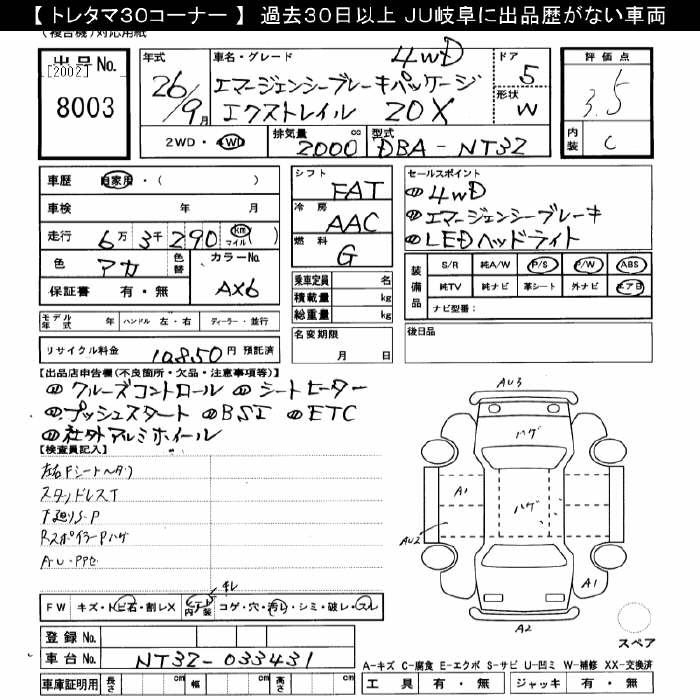 【トレタマ30コーナー】 過去30日以上 JU岐阜に出品歴がない車両
(複合機)対応用紙
出品No.
[2002]
8003
年式 26/9月
車名・グレード 4WD
エマージェンシーブレーキパッケージ
エクストレイル 20X
ドア 5
形状 W
2WD・4WD 排気量 2000 cc 型式 DBA-NT32
評価点
3.5
内装 C
車歴 自家用・( )
車検 年 月
走行 6万3千290 km マイル( )
色 アカ 色替 カラーNo. AX6
保証書 有・無
モデル年式 年 ハンドル 左・右 ディーラー・並行
リサイクル料金 10850円 預託済
シフト FAT
冷房 AAC
燃料 G
乗車定員 名
積載量 kg
総重量 kg
名変期限
月 日
セールスポイント
4WD
エマージェンシーブレーキ
LEDヘッドライト
装備品 S/R 純A/W P/S P/W ABS
純TV 純ナビ 革シート 外ナビ エア日
ナビ型番:
後日品
【出品店申告欄(不良箇所・欠品・注意事項等)】
クルーズコントロール シートヒーター
プッシュスタート BSI ETC
社外アルミホイール
【検査員記入】
左右Fシートヘタリ
スタッドレスT
下廻りS・P
RスポイラーPハゲ
FW キズ・トビ石・割レX 内装 コゲ・穴・汚レ・シミ・破レ・スレ
登録No.
車台No. NT32-033431
車庫証明用 長さ cm 幅 cm 高さ cm
AU3
ハゲ
A1
ハゲ
AU2
A1
A2
スペア
A-キズ C-腐食 E-エクボ S-サビ U-凹ミ W-補修 XX-交換済
工具 有・無 ジャッキ 有・無